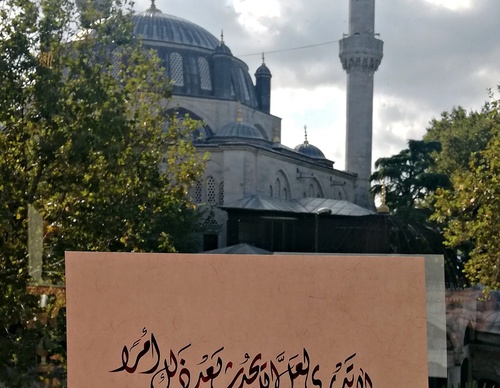 لا تدري لعل الله يحدث بعد ذلك أمرًا